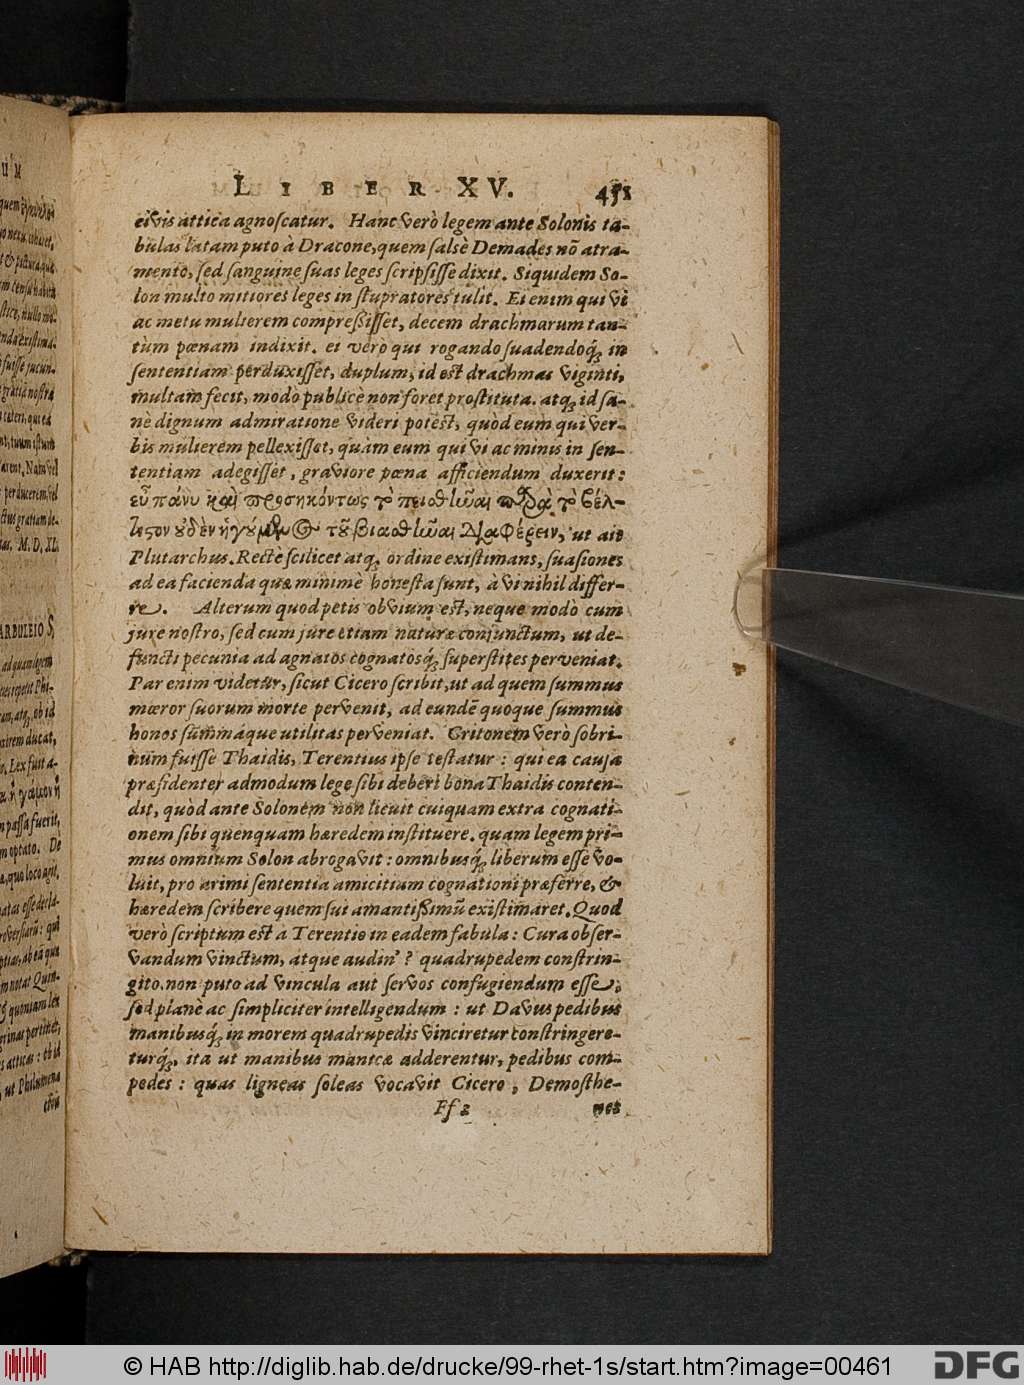 LIBER XV. 451
civis attica agnoscatur. Hanc verò legem ante Solonis ta-
bulas latam puto à Dracone, quem salsè Demades nõ atra-
mento, sed sanguine suas leges scripsisse dixit. Siquidem So-
lon multo mitiores leges in stupratores tulit. Ei enim qui vi
ac metu mulierem compreßisset, decem drachmarum tan-
tùm pœnam indixit. ei verò qui rogando suadendoq́; in
sententiam perduxisset, duplum, id est drachmas viginti,
multam fecit, modò publicè non foret prostituta. atq; id sa-
nè dignum admiratione videri potest, quòd eum qui ver-
bis mulierem pellexisset, quàm eum qui vi ac minis in sen-
tentiam adegisset, graviore pœna afficiendum duxerit:
εὖ πάνυ καὶ προσηκόντως τὸ πειοθῆναι παρὰ τὸ βέλ-
τιστον οὐδὲν ἡγούμενος τοῦ βιασθῆναι διαφέρειν, ut ait
Plutarchus. Rectè scilicet atq; ordine existimans, suasiones
ad ea facienda quæ minimè honesta sunt, à vi nihil differ-
re. Alterum quod petis obvium est, neque modò cum
jure nostro, sed cum jure etiam naturæ conjunctum, ut de-
functi pecunia ad agnatos cognatosq́; superstites perveniat.
Par enim videtur, sicut Cicero scribit, ut ad quem summus
mœror suorum morte pervenit, ad eundẽ quoque summus
honos summáque utilitas perveniat. Critonem verò sobri-
num fuisse Thaidis, Terentius ipse testatur: qui ea causa
præfidenter admodum lege sibi deberi bona Thaidis conten-
dit, quòd ante Solonem non licuit cuiquam extra cognati-
onem sibi quenquam hæredem instituere. quam legem pri-
mus omnium Solon abrogavit: omnibusq́; liberum esse vo-
luit, pro animi sententia amicitiam cognationi præferre, &
hæredem scribere quem sui amantißimũ existimaret. Quod
verò scriptum est à Terentio in eadem fabula: Cura obser-
vandum vinctum, atque audin'? quadrupedem constrin-
gito. non puto ad vincula aut servos confugiendum esse,
sed planè ac simpliciter intelligendum: ut Davus pedibus
manibusq́; in morem quadrupedis vinciretur constringere-
turq́;, ita ut manibus manicæ adderentur, pedibus com-
pedes: quas ligneas soleas vocavit Cicero, Demosthe-
Ff 2 nes
© HAB http://diglib.hab.de/drucke/99-rhet-1s/start.htm?image=00461
DFG